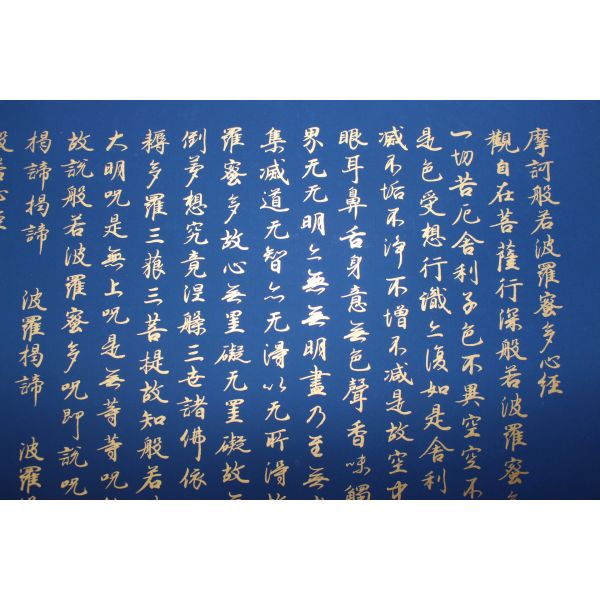 摩訶般若波羅蜜多心經
觀自在菩薩行深般若波羅蜜多
一切苦厄舍利子色不異空空不
是色受想行識亦復如是舍利
滅不垢不淨不增不减是故空中
眼耳鼻舌身意無色聲香味觸
界无无明亦無無明盡乃至無
集滅道无智亦无得以无所得故
羅蜜多故心無罣礙无罣礙故
倒夢想究竟涅槃三世諸佛依
耨多羅三藐三菩提故知般若
大明呪是無上呪是無等等呪
故說般若波羅蜜多呪即說呪
揭諦揭諦 波羅揭諦 波羅
般若心經